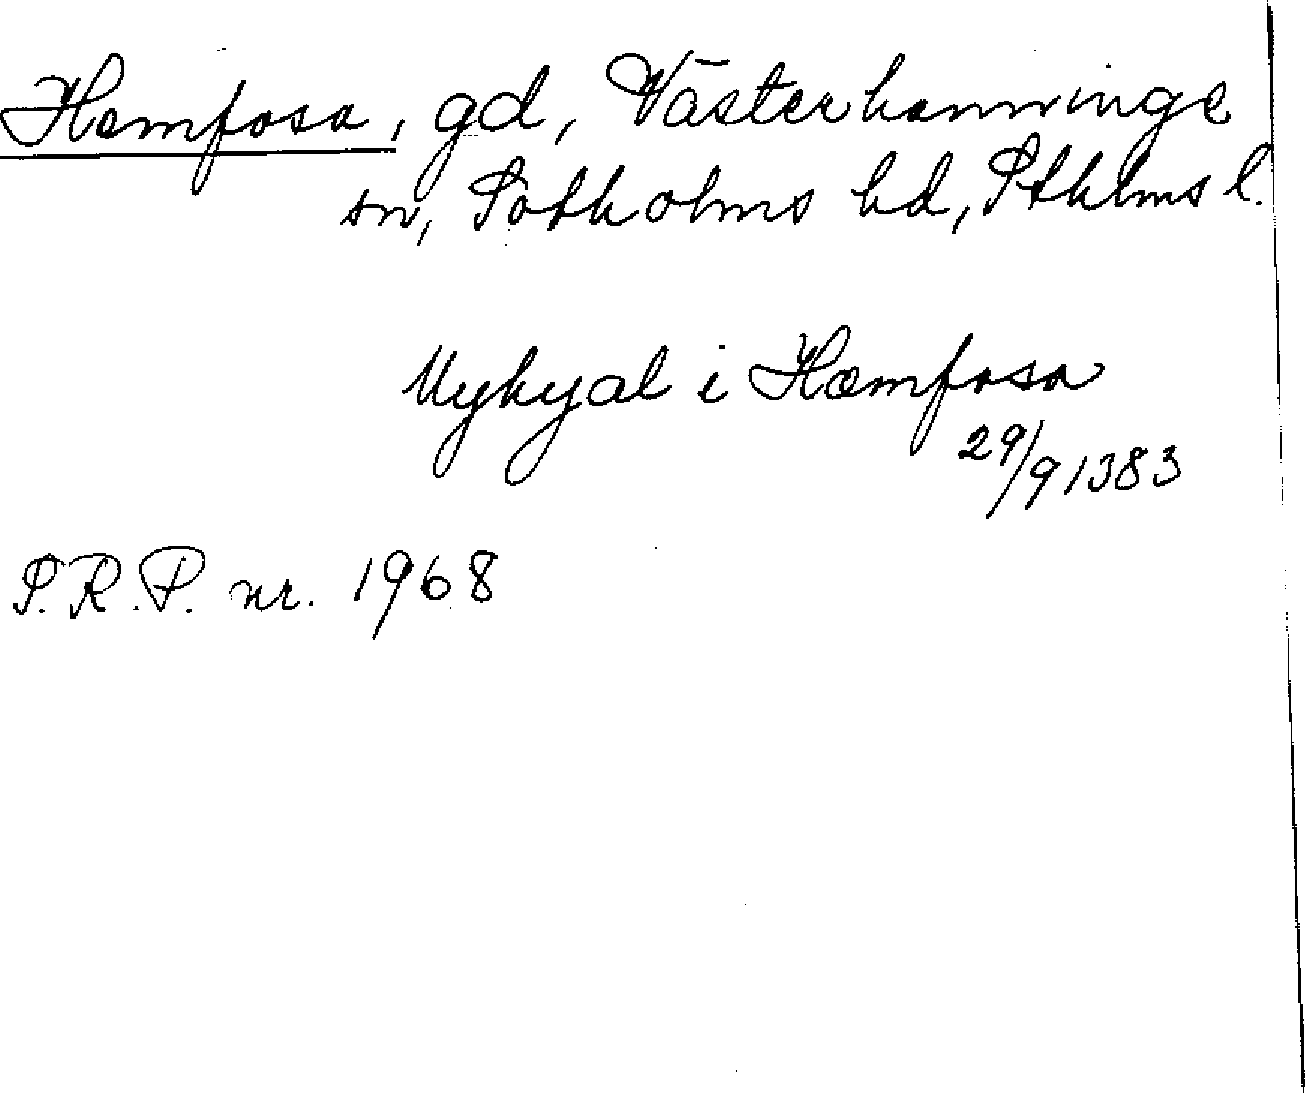 Hemfosa, gd, Västerhanninge
sn, Sotholms hd, Sthlms l.
Mykyal i Hæmfosa
29/9 1383
S.R.P. nr. 1968